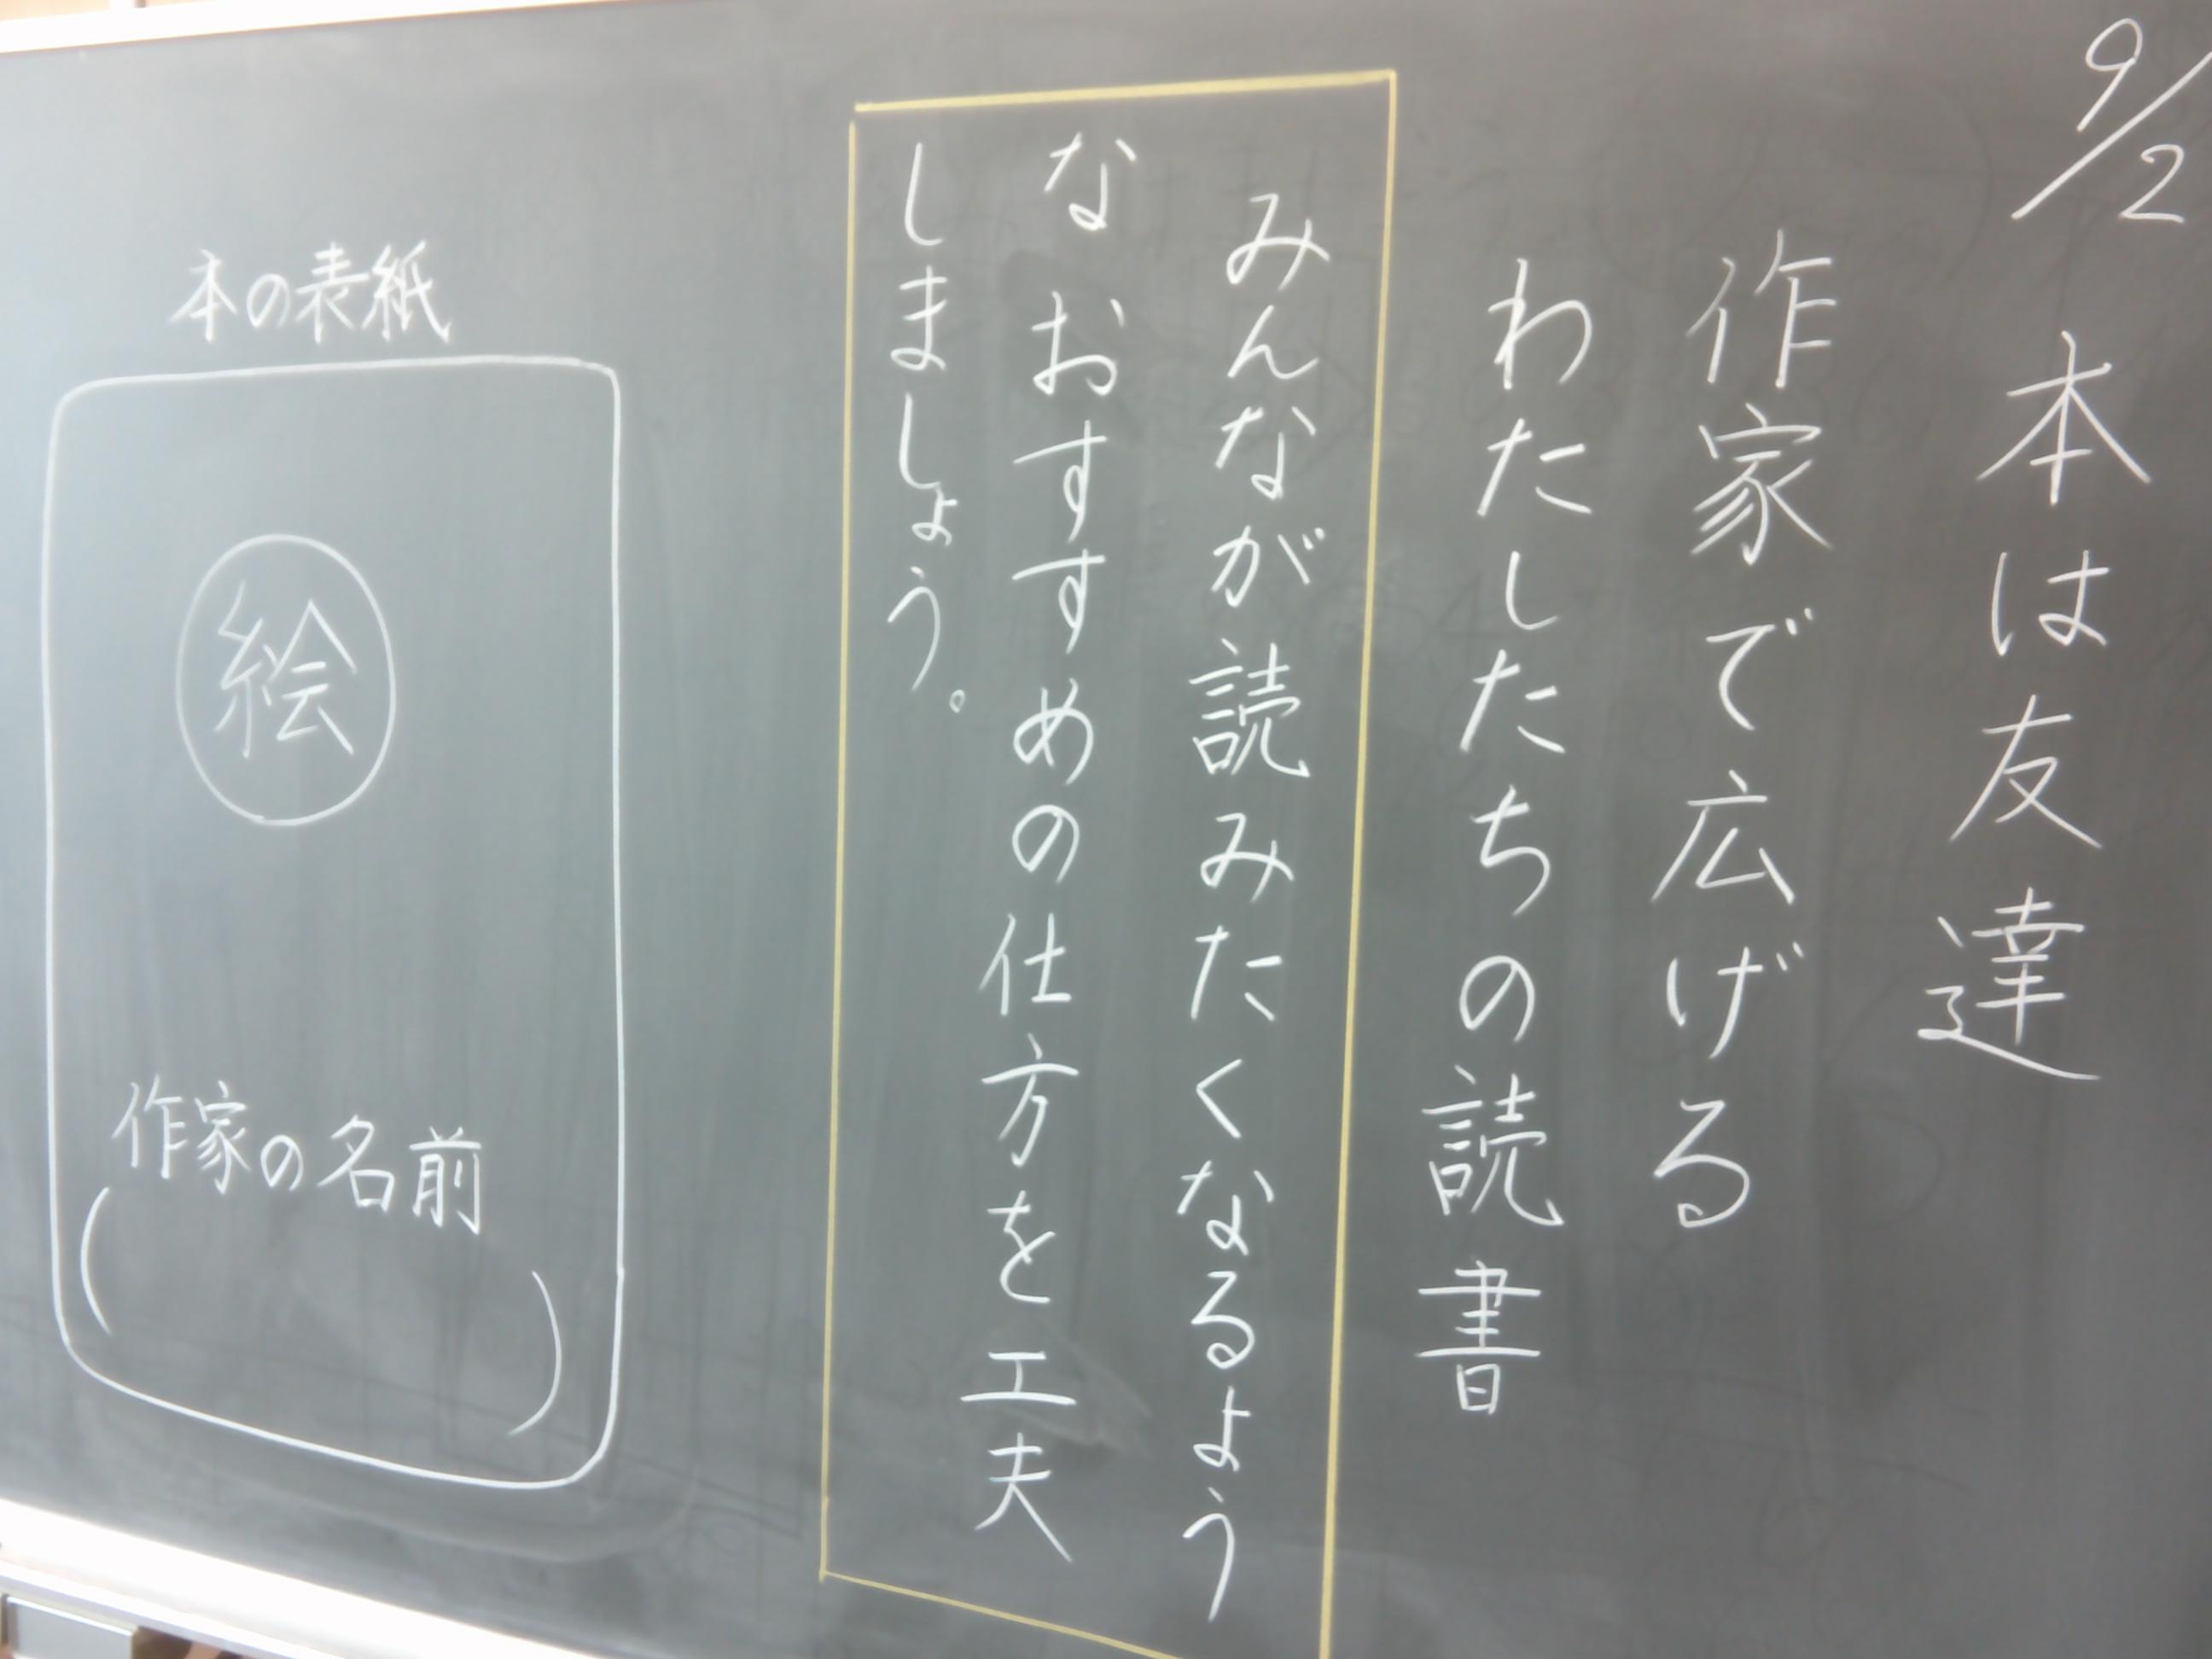 9/2
本は友達
作家で広げる
わたしたちの読書
みんなが読みたくなるよう
なおすすめの仕方を工夫
しましょう。
本の表紙
絵
作家の名前
(　　　)